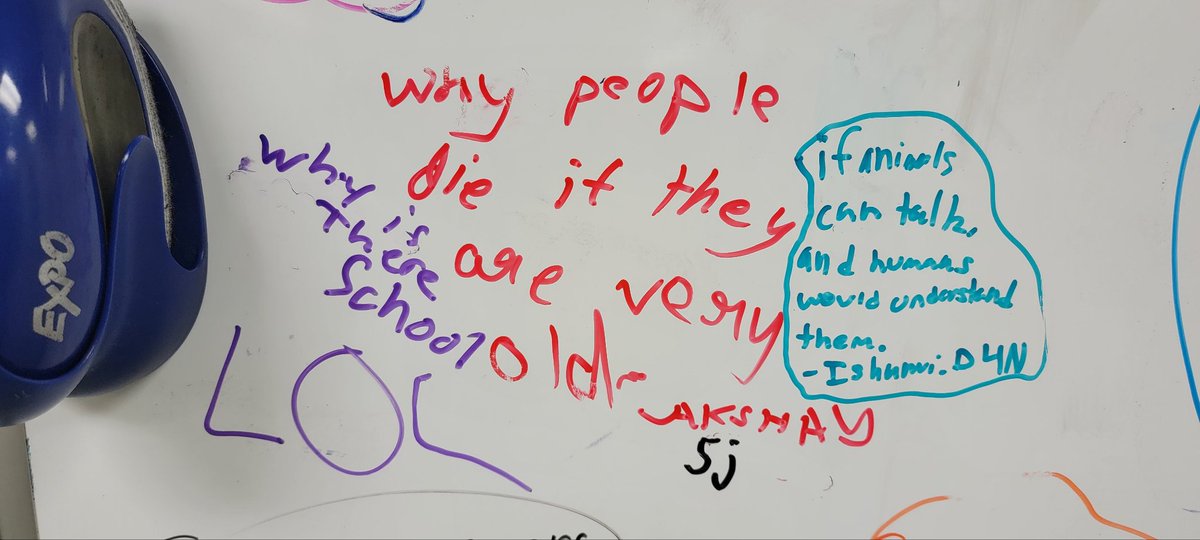 EXPO
why people
die if they
are very
old-
AKSHAY
5j
why is
there
School
LOL
if animals
can talk,
and humans
would understand
them.
- Ishanvi. D 4N